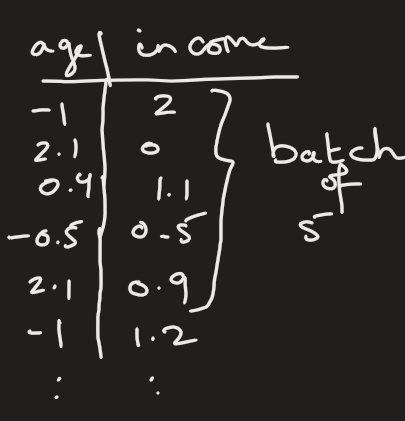 age income
-1 2
2.1 0
0.4 1.1
-0.5 0.5
2.1 0.9
-1 1.2
: :
batch
of
5